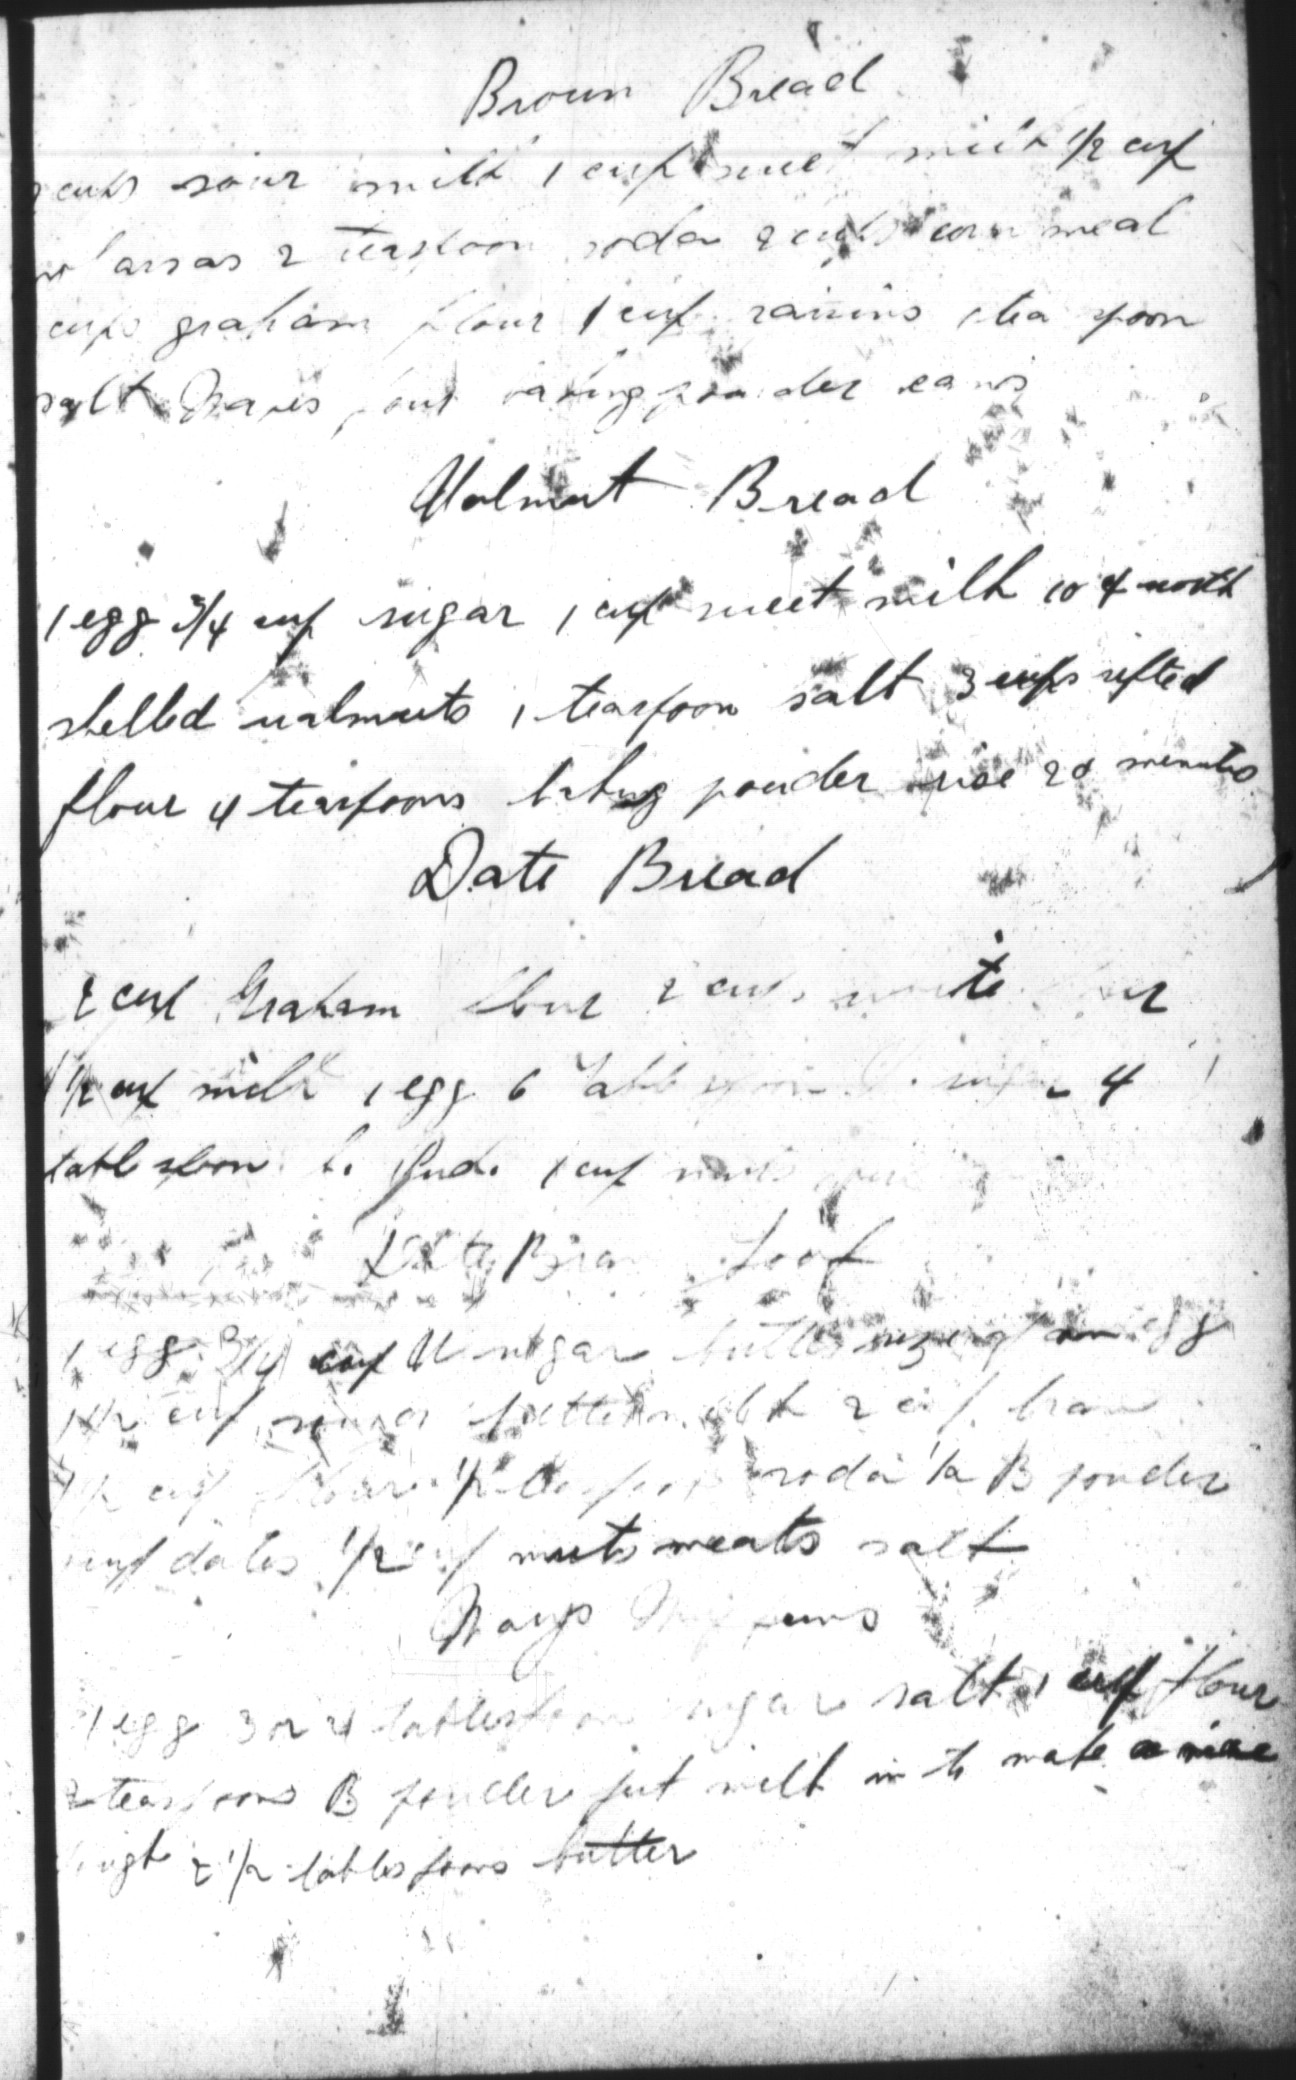 Broun Bread
cups sour milk 1 cup sweet milk 1/2 cup
molassas 2 teaspoon soda 2 cups corn meal
cups graham flour 1 cup raisins 1 tea spoon
salt Makes four baking pouder cans
Walnut Bread
1 egg 3/4 cup sugar 1 cup sweet milk 10 ¢ worth
shelled walnuts 1 teaspoon salt 3 cups sifted
flour 4 teaspoons baking pouder rise 20 minutes
Date Bread
2 cup Graham flour 2 cups white flour
1 1/2 cup milk 1 egg 6 table spoon sugar 4
table spoon 1 cup nuts
Date Bran Loof
1 egg 3/4 cup sugar butter size of an egg
1 1/2 cup sour or buttermilk 2 cup bran
1/2 cup flour 1/2 teaspoon soda 1/2 B pouder
cup dates 1/2 cup nuts meats salt
Mays Muffins
1 egg 3 or 4 tablespoon sugar salt 1 cup flour
2 teaspoons B pouder put milk in to make a nice
2 1/2 tablespoons butter